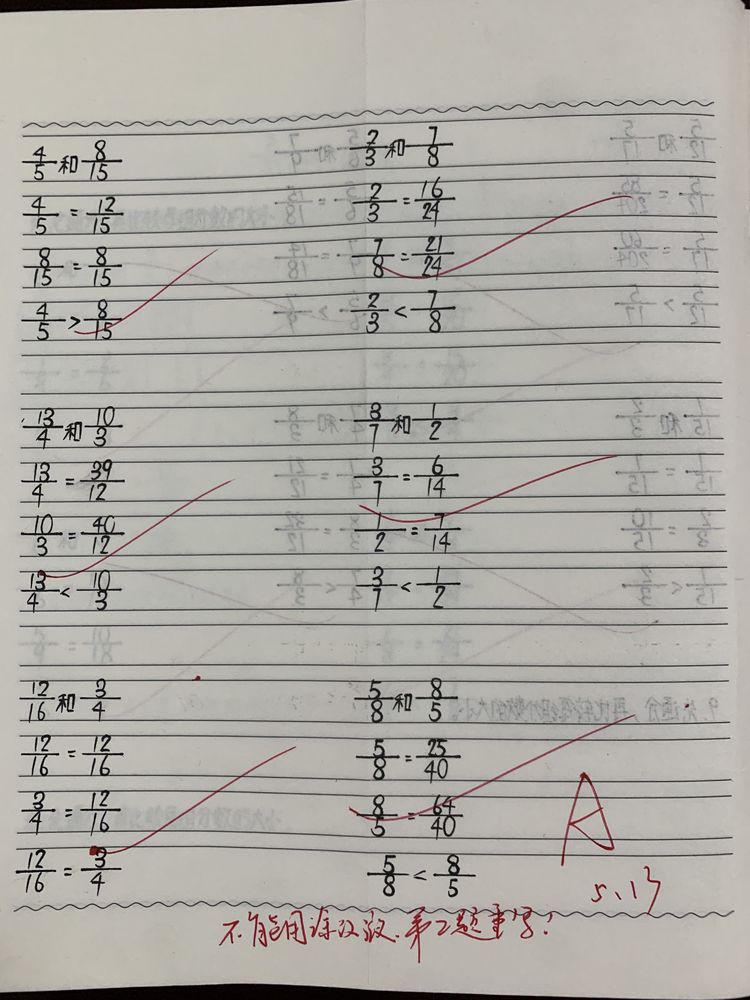 4/5 和 8/15
4/5 = 12/15
8/15 = 8/15
4/5 > 8/15
2/3 和 7/8
2/3 = 16/24
7/8 = 21/24
2/3 < 7/8
13/4 和 10/3
13/4 = 39/12
10/3 = 40/12
13/4 < 10/3
3/7 和 1/2
3/7 = 6/14
1/2 = 7/14
3/7 < 1/2
12/16 和 3/4
12/16 = 12/16
3/4 = 12/16
12/16 = 3/4
5/8 和 8/5
5/8 = 25/40
8/5 = 64/40
5/8 < 8/5
A
5.13
不能用涂改液.第2题重写!